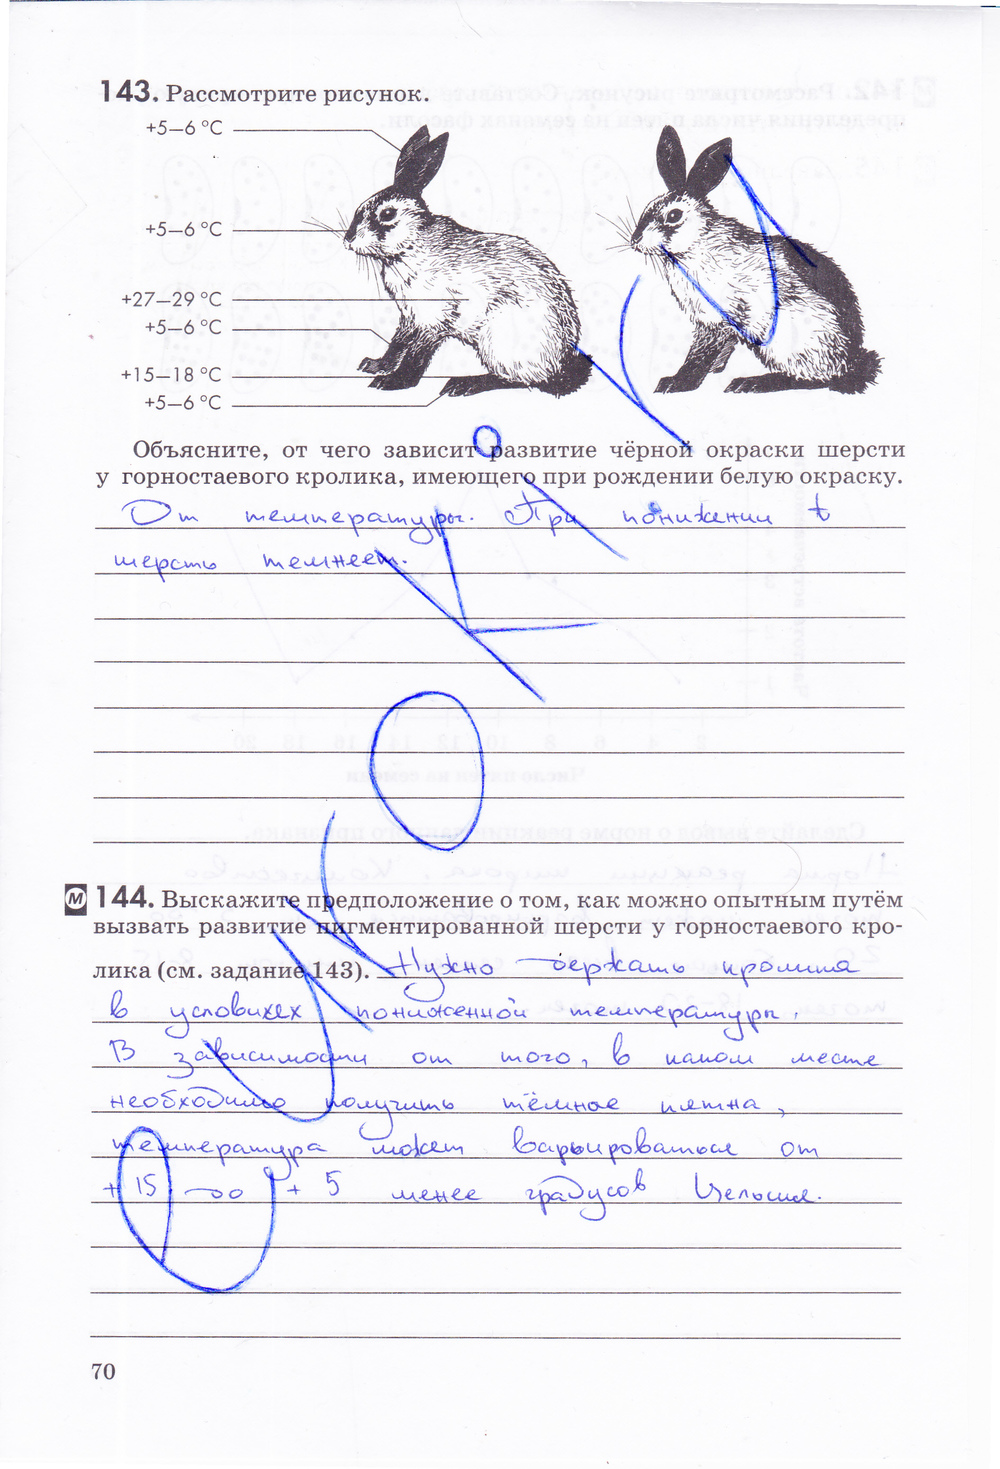 143. Рассмотрите рисунок.
+5–6 °С
+5–6 °С
+27–29 °С
+5–6 °С
+15–18 °С
+5–6 °С
Объясните, от чего зависит развитие чёрной окраски шерсти
у горностаевого кролика, имеющего при рождении белую окраску.
От температуры. При понижении t
шерсть темнеет.
М 144. Выскажите предположение о том, как можно опытным путём
вызвать развитие пигментированной шерсти у горностаевого кро-
лика (см. задание 143). Нужно держать кролика
в условиях пониженной температуры.
В зависимости от того, в каком месте
необходимо получить тёмное пятна,
температура может варьироваться от
+ 15 до + 5 менее градусов Цельсия.
70